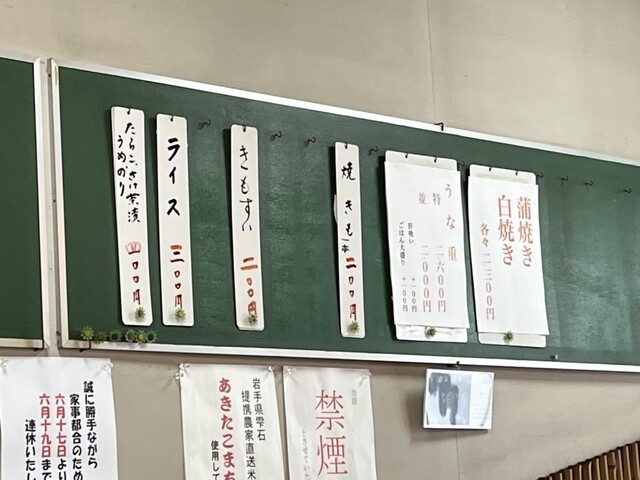 蒲焼き
白焼き
各々 二三〇〇円
うな重
特 二六〇〇円
並 二〇〇〇円
肝吸い +一〇〇円
ごはん大盛り +一〇〇円
焼きも 一本 二〇〇円
きもすい 二〇〇円
ライス 三〇〇円
たらこ、さけ茶漬
うめのり
四〇〇円
当店
禁煙
とさせていた
岩手県雫石
提携農家直送米
あきたこまち
使用して
誠に勝手ながら
家事都合のため
六月十七日より
六月十九日まで
連休いたし